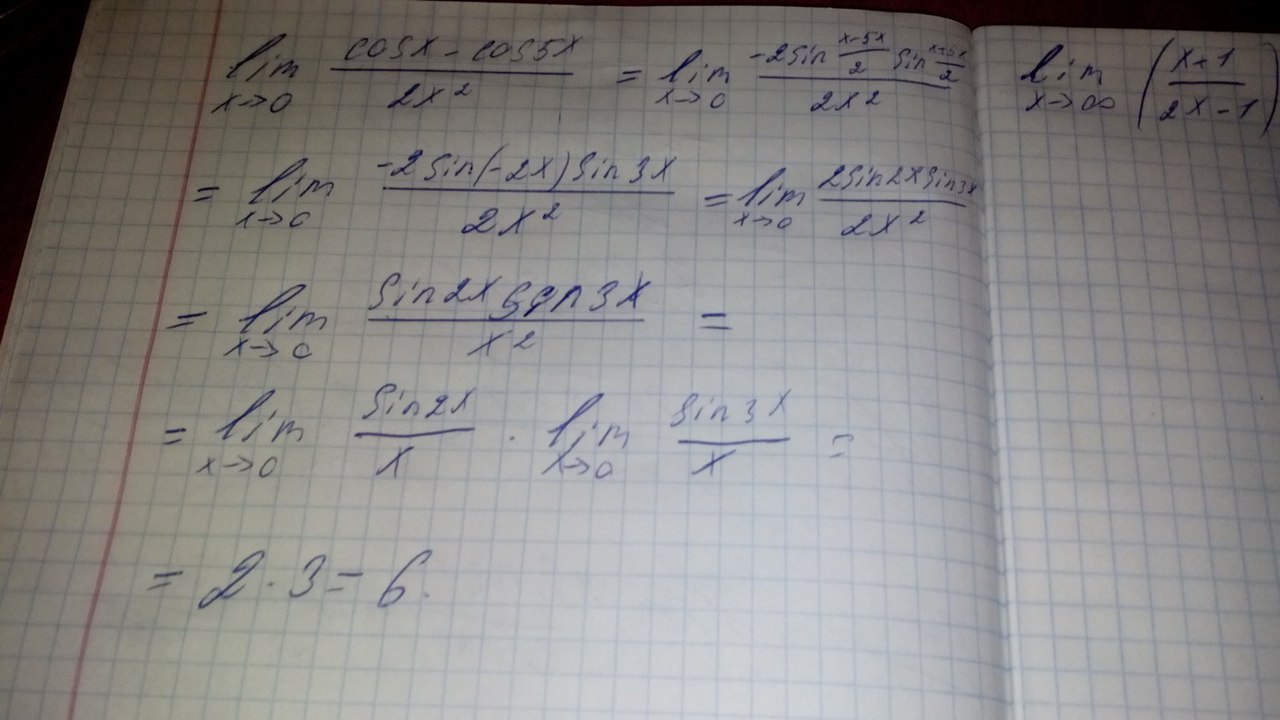 lim x→0 (cosx − cos5x)/(2x²) = lim x→0 (−2sin (x−5x)/2 sin (x+5x)/2)/(2x²)
= lim x→0 (−2sin(−2x)sin3x)/(2x²) = lim x→0 (2sin2xsin3x)/(2x²)
= lim x→0 (sin2x sin3x)/(x²) =
= lim x→0 (sin2x)/x · lim x→0 (sin3x)/x =
= 2·3 = 6.
lim x→∞ ((x+1)/(2x−1))